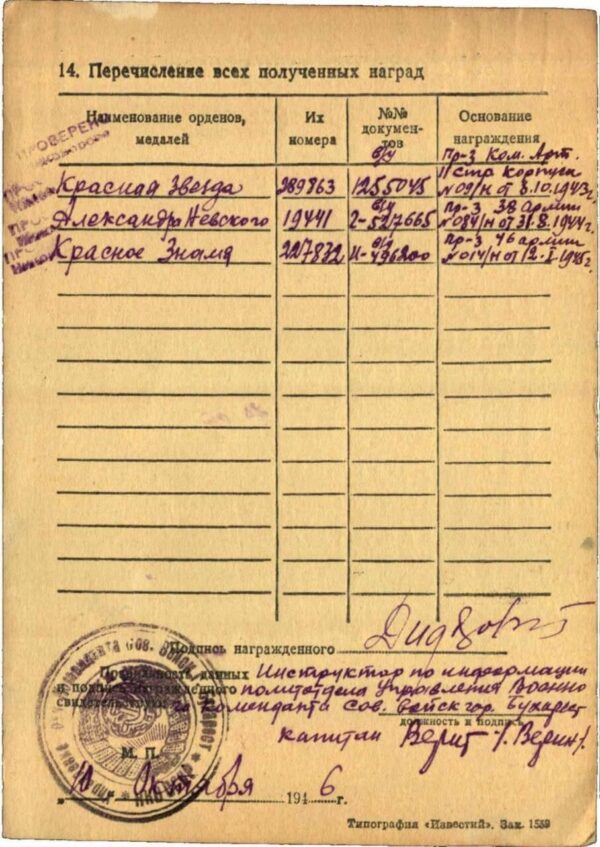 14. Перечисление всех полученных наград
Наименование орденов, медалей
Их номера
№№ документов
Основание награждения
ПРОВЕРЕНО
Красная Звезда 289863 б/у 1255045 Пр-з Ком. Арт. 11 стр корпуса №09/н от 8.10.1943г.
Александра Невского 19441 б/у 2-527665 Пр-з 38 армии от 31.8.1944г.
Красное Знамя 227832 496200 Пр-з 46 армии №014/н от 1945г.
Подпись награжденного
данных Инструктор по информации
и подпись награжденного политотдела Управления Военно
свидетельствую го коменданта Сов. Войск гор. Бухарест
должность и подпись
М. П. капитан
10 Октября 1946 г.
Типография «Известий». Зак. 1559